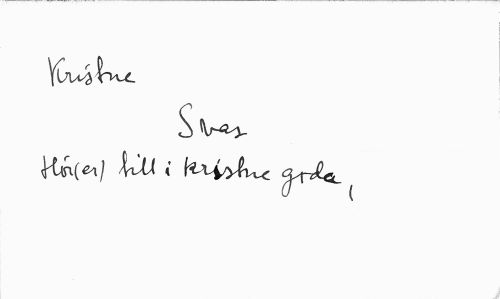 Kristne
Svar
Hör(er) till i kristne grda,